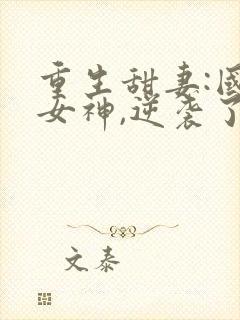 重生甜妻:國
女神,逆袭了
文泰